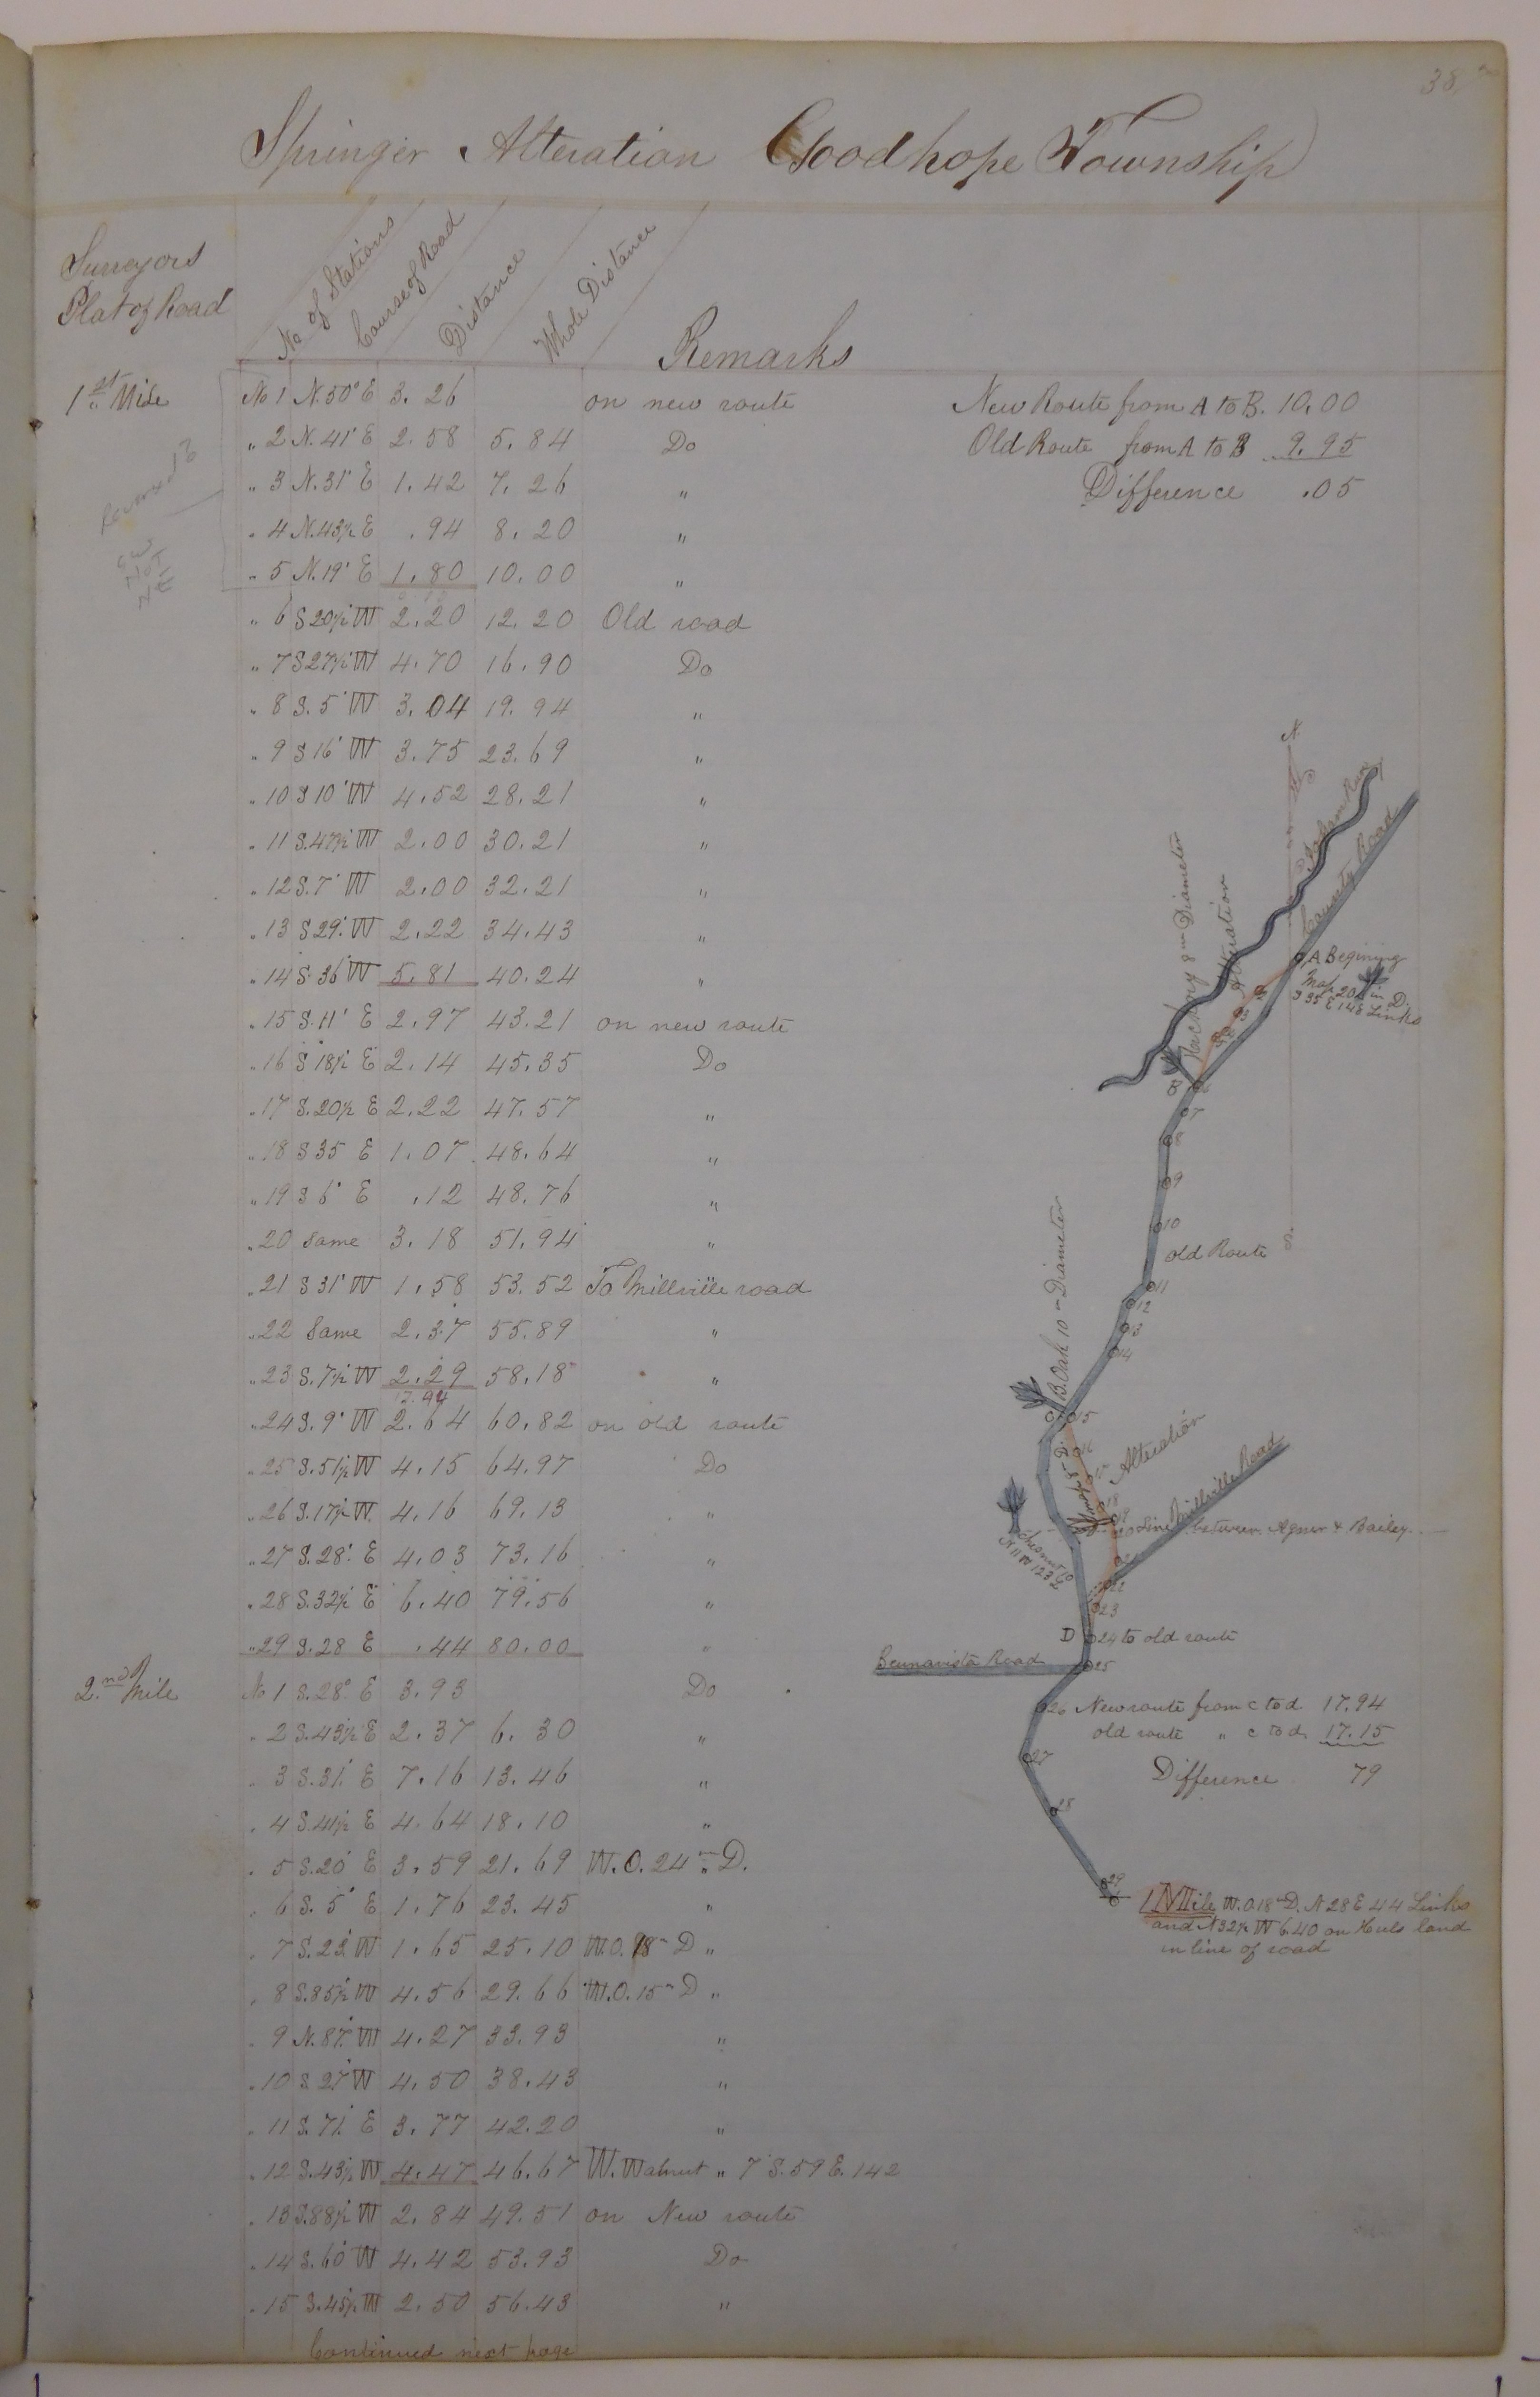 38
Springer Alteration Goodhope Township
Surveyors
Plat of Road
No of Stations
Course of Road
Distance
Whole Distance
Remarks
1st Mile
No 1 N. 50° E 3. 26 on new route
" 2 N. 41° E 2. 58 5. 84 Do
" 3 N. 31° E 1. 42 7. 26 "
" 4 N. 43½ E .94 8. 20 "
" 5 N. 19° E 1. 80 10. 00 "
" 6 S 20½° W 2. 20 12. 20 Old road
" 7 S 27½° W 4. 70 16. 90 Do
" 8 S. 5° W 3. 04 19. 94 "
" 9 S 16° W 3. 75 23. 69 "
" 10 S 10° W 4. 52 28. 21 "
" 11 S. 47½° W 2. 00 30. 21 "
" 12 S. 7° W 2. 00 32. 21 "
" 13 S 29° W 2. 22 34. 43 "
" 14 S. 36° W 5. 81 40. 24 "
" 15 S. 11° E 2. 97 43. 21 on new route
" 16 S 18½ E 2. 14 45. 35 Do
" 17 S. 20½ E 2. 22 47. 57 "
" 18 S 35 E 1. 07 48. 64 "
" 19 S 6° E .12 48. 76 "
" 20 Same 3. 18 51. 94 "
" 21 S 31° W 1. 58 53. 52 To Millville road
" 22 Same 2. 37 55. 89 "
" 23 S. 7½° W 2. 29 58. 18 "
17. 94
" 24 S. 9° W 2. 64 60. 82 on old route
" 25 S. 51½ W 4. 15 64. 97 Do
" 26 S. 17½° W. 4. 16 69. 13 "
" 27 S. 28° E 4. 03 73. 16 "
" 28 S. 32½° E 6. 40 79. 56 "
" 29 S. 28 E .44 80. 00 "
2nd Mile
No 1 S. 28° E 3. 93 Do
" 2 S. 43½ E 2. 37 6. 30 "
" 3 S. 31° E 7. 16 13. 46 "
" 4 S. 41½ E 4. 64 18. 10 "
" 5 S. 20° E 3. 59 21. 69 W. O. 24 in D.
" 6 S. 5° E 1. 76 23. 45 "
" 7 S. 23° W 1. 65 25. 10 W. O. 18 in D "
" 8 S. 85½° W 4. 56 29. 66 W. O. 15 in D "
" 9 N. 87° W 4. 27 33. 93 "
" 10 S. 27° W 4. 50 38. 43 "
" 11 S. 71° E 3. 77 42. 20 "
" 12 S. 43½ W 4. 47 46. 67 W. Walnut " 7 S. 59 E. 142
" 13 S. 88½° W 2. 84 49. 51 on New route
" 14 S. 60° W 4. 42 53. 93 Do
" 15 S. 45½ W 2. 50 56. 43 "
Continued next page
SW
NOT
NE
New Route from A to B. 10. 00
Old Route from A to B 9. 95
Difference .05
N.
County Road
Hickory 8 in Diameter
Alteration
A Begining
Map. 20 in D.
S 35 E 148 Links
2
3
B
6
7
8
9
10
old Route
S.
11
12
13
14
B. Oak 10 in Diameter
C
15
16
Alteration
18
19
Millville Road
Line between Agner & Bailey
Chesnut 10
N 11 W 123 L
22
23
D 24 to old route
Beunavista Road
25
26 New route from c to d 17. 94
old route " c to d 17. 15
Difference 79
27
28
29
1 Mile W. O 18 in D. N 28 E 44 Links
and N 32½ W 6.40 on Huls land
in line of road